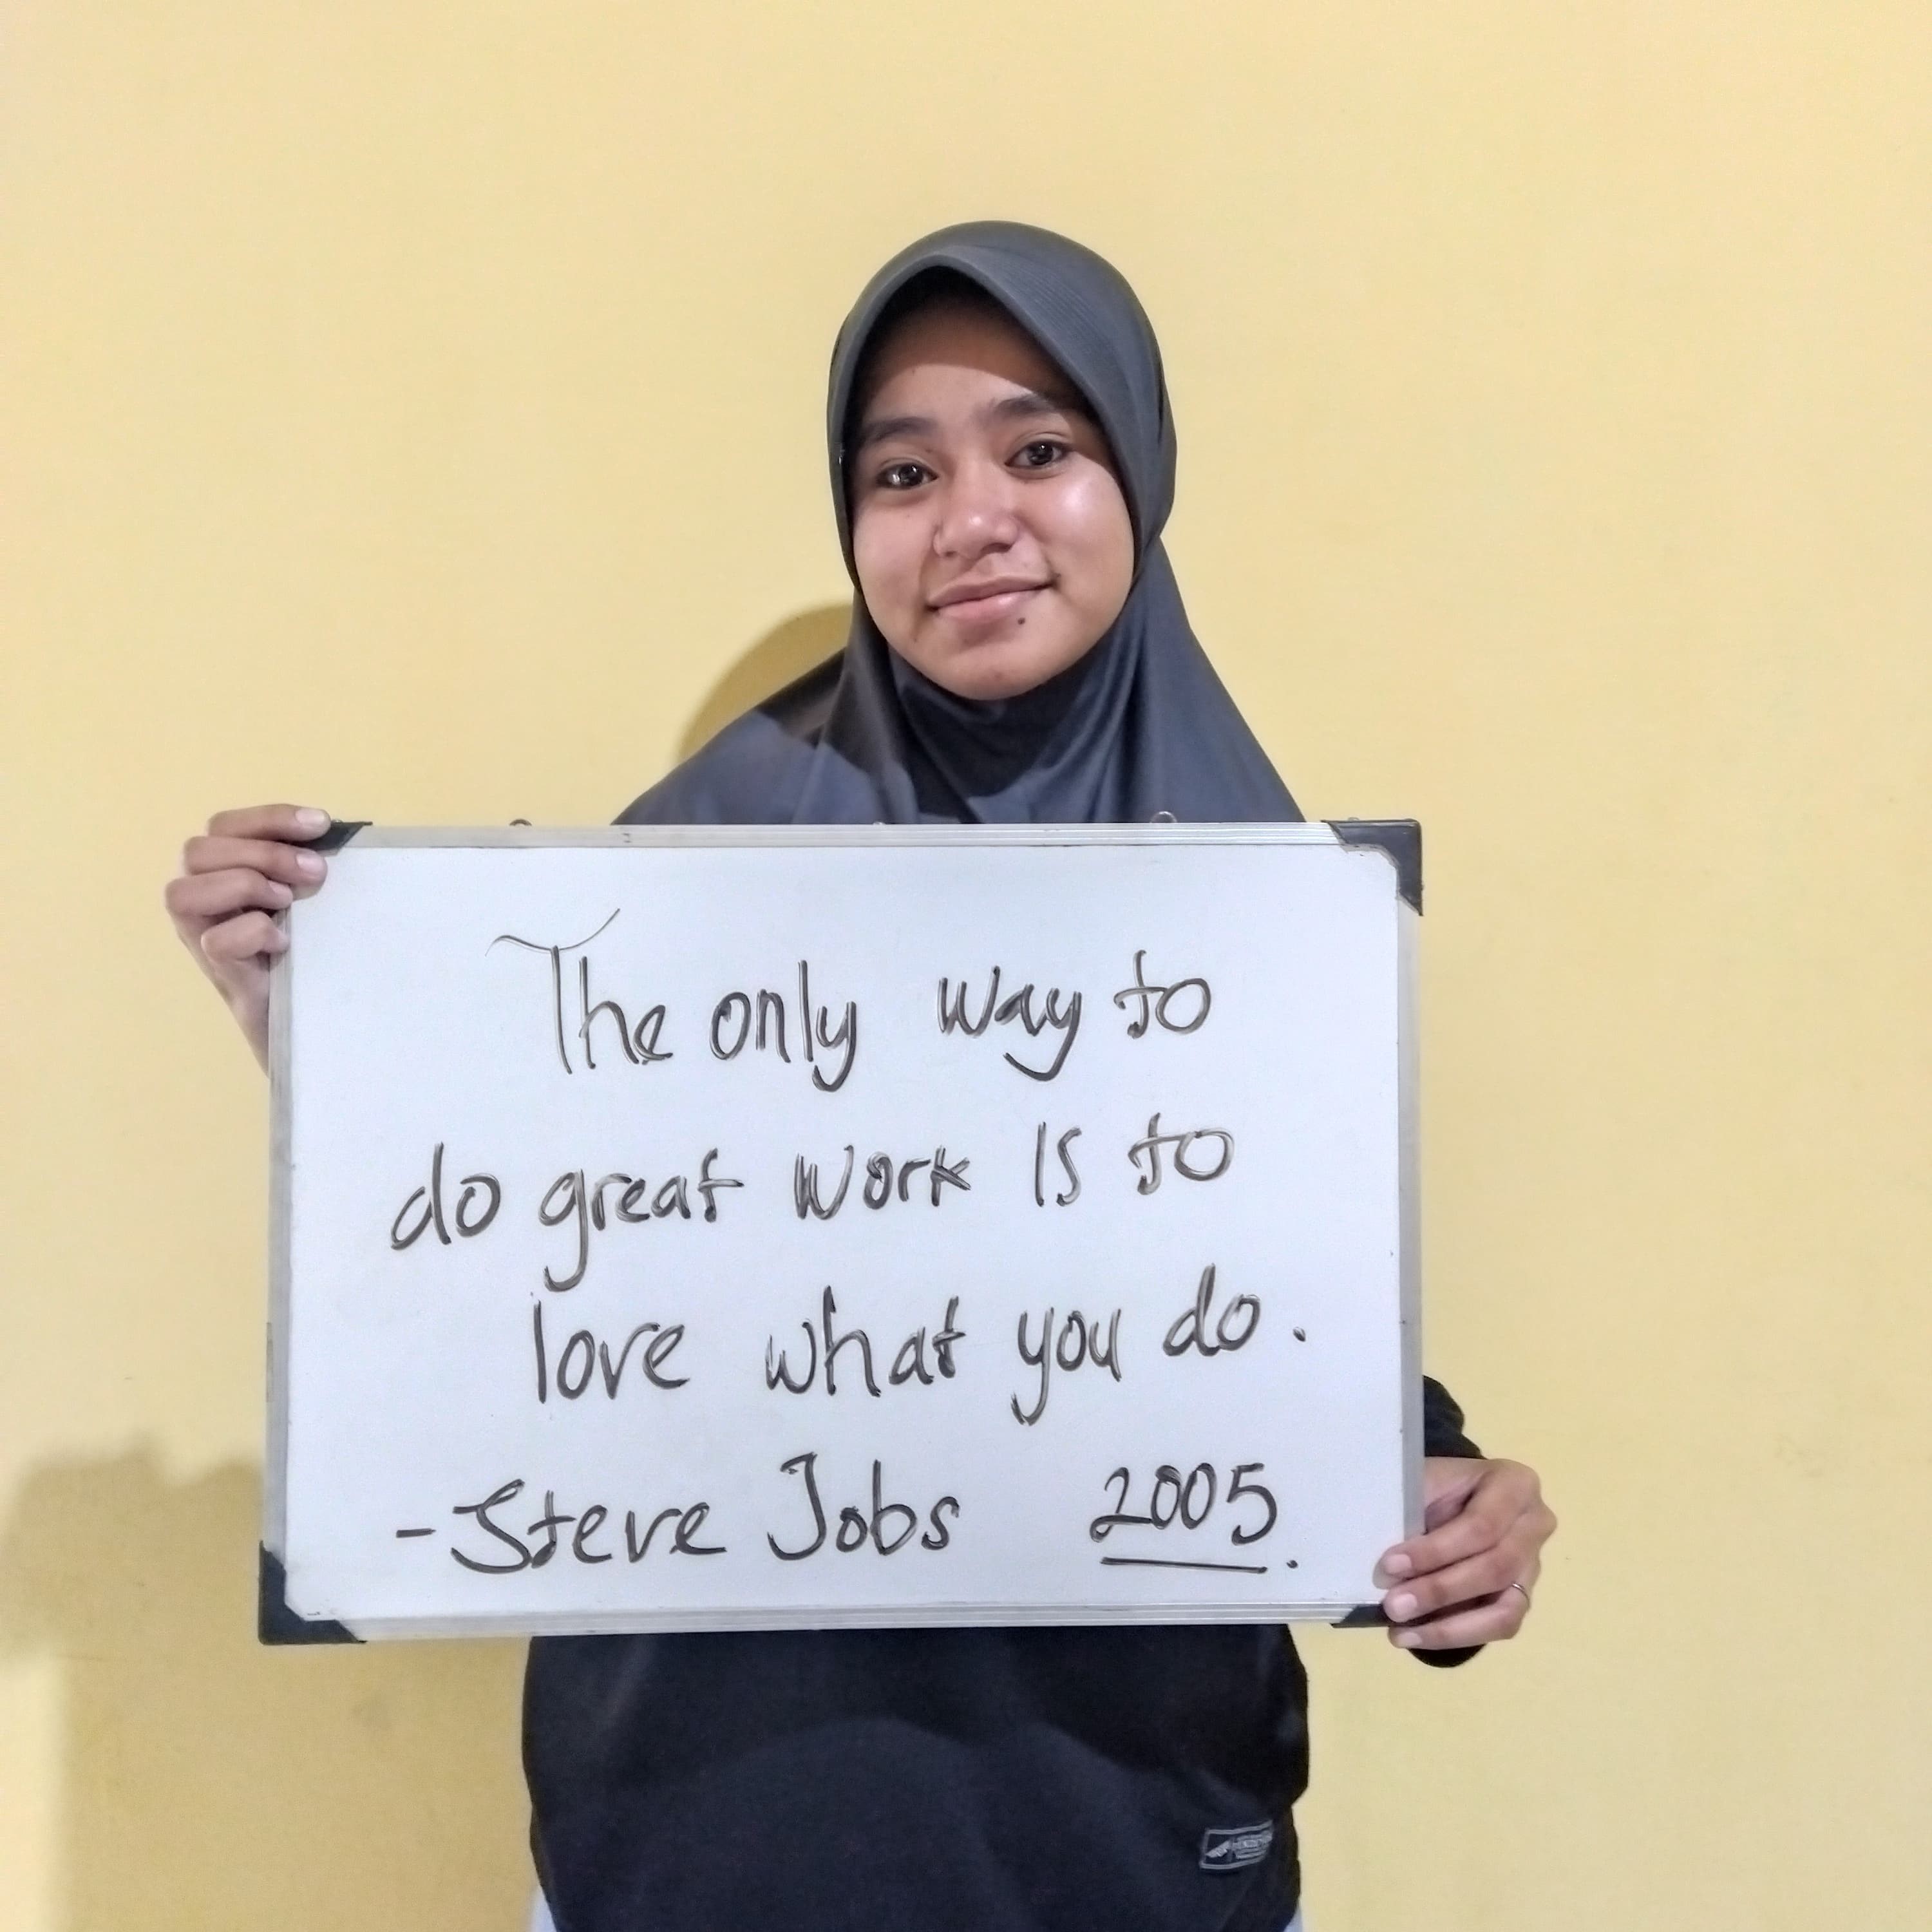 The only way to
do great work Is to
love what you do.
-Steve Jobs 2005.